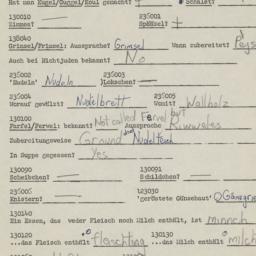 Hat man Kugel/Guggel/Koul gemacht? Schalet?
130010 236001
Zimmes? Späßel? +
138040
Grimsel/Primsel: Aussprache? Grimsel Wann zubereitet? Pejs
Auch bei Nichtjuden bekannt? No
236002 236003
'Nudeln' Nudeln Lokschen?
236004 236005
Worauf gewälzt? Nudelbrett Womit? Wallholz
130100 Not called Fervel but
Farfel/Ferwel: bekannt? Aussprache Riwweles
Zubereitungsweise Ground Nudelteich
In Suppe gegessen? Yes
130090 130091
Scheibchen? Schildchen?
236006 123030
Knistern? 'geröstete Gänsehaut'
130140
Ein Essen, das weder Fleisch noch Milch enthält, ist minnich
130120 130130
...das Fleisch enthält fleischting ...das Milch enthält milch